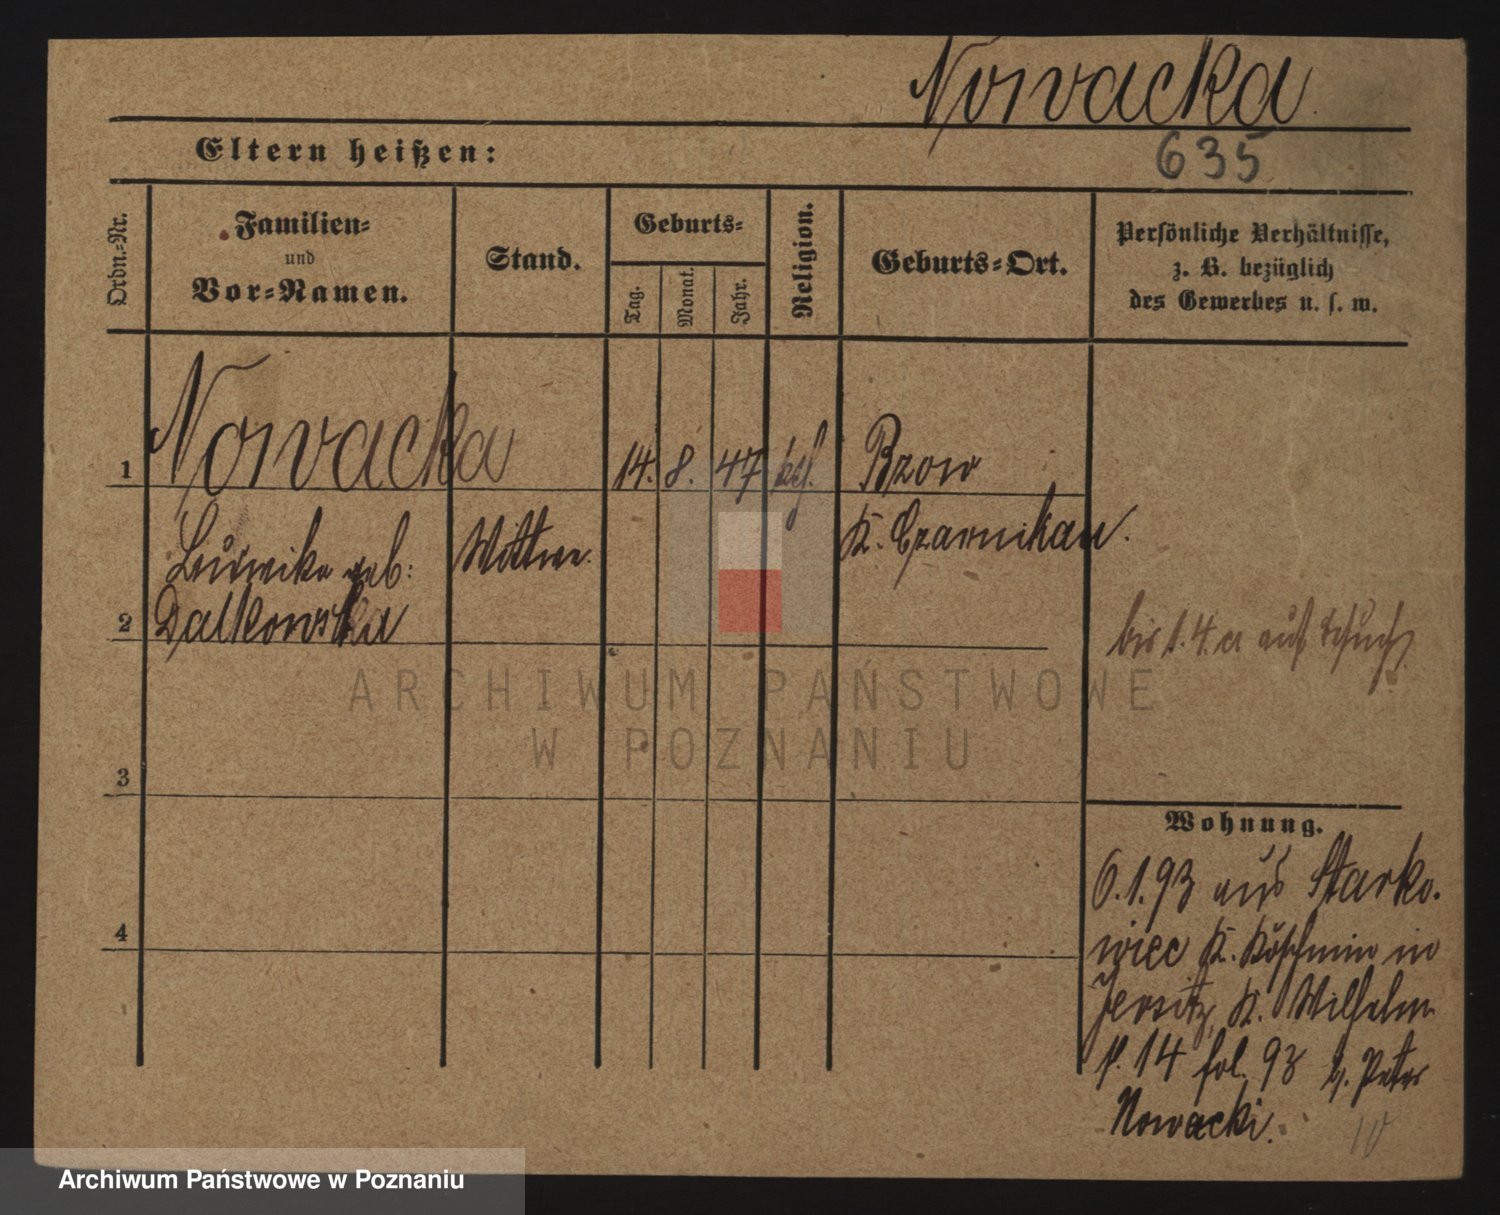 Nowacka
Eltern heißen:
635
Ordn.-Nr.
Familien-
und
Vor-Namen.
Stand.
Geburts-
Tag.
Monat.
Jahr.
Religion.
Geburts-Ort.
Persönliche Verhältnisse,
z. B. bezüglich
des Gewerbes u. s. w.
1
Nowacka
14. 8. 47
Bzow
Ludwika geb:
Wittwe.
K. Czarnikau.
2
Dalkowska
bis 1.4. auf
3
4
Wohnung.
6.1.93 aus Starko-
wiec K. Koschmin in
Jersitz, K. Wilhelm
14 fol. 93 b. Peter
Nowacki.
ARCHIWUM PAŃSTWOWE
W POZNANIU
Archiwum Państwowe w Poznaniu